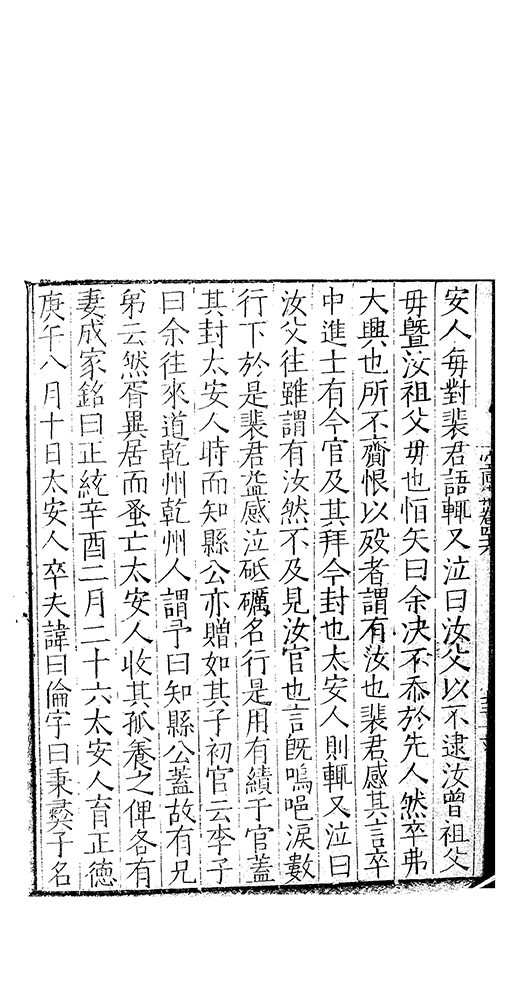 安人每對裴君語輒又泣曰汝父以不逮汝曾祖父
毋曁汝祖父毋也怕矢曰余决不忝於先人然卒弗
大興也所不齎恨以殁者謂有汝也裴君感其言卒
中進士有今官及其拜今封也太安人則輒又泣曰
汝父往雖謂有汝然不及見汝官也言旣嗚唈淚數
行下於是裴君益感泣砥礪名行是用有績于官蓋
其封太安人時而知縣公亦贈如其子初官云李子
曰余往來道乾州乾州人謂予曰知縣公蓋故有兄
弟云然胥異居而蚤亡太安人收其孤養之俾各有
妻成家銘曰正統辛酉二月二十六太安人育正德
庚午八月十日太安人卒夫諱曰倫字曰秉彛子名